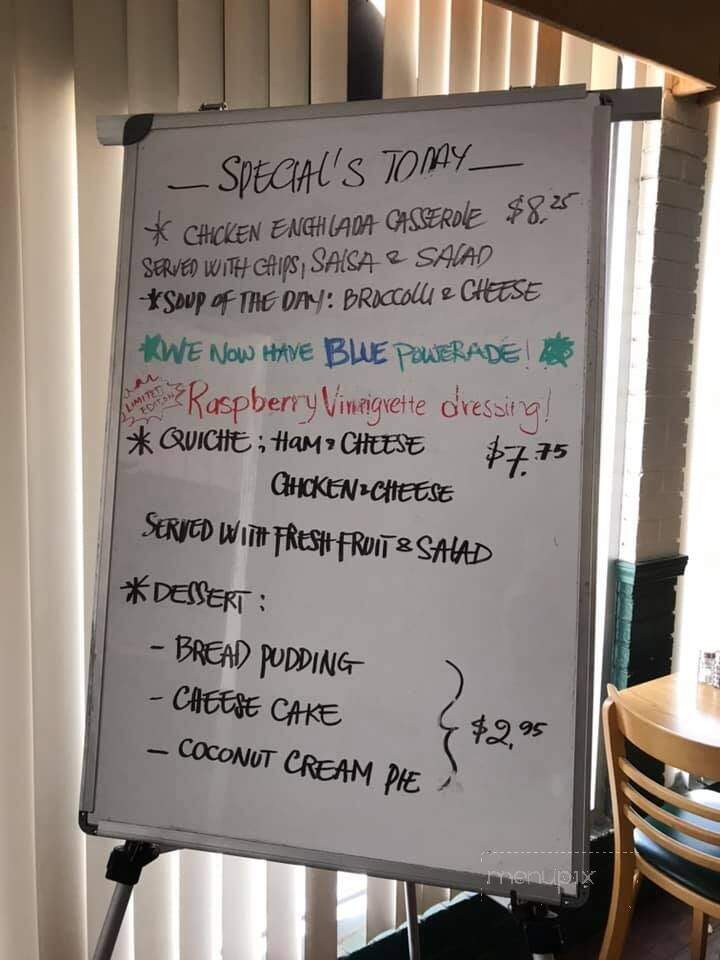 — SPECIAL'S TODAY —
* CHICKEN ENCHILADA CASSEROLE $8.25
SERVED WITH CHIPS, SALSA & SALAD
*SOUP OF THE DAY: BROCCOLLI & CHEESE
*WE NOW HAVE BLUE POWERADE! *
LIMITED EDITION Raspberry Vinaigrette dressing!
* QUICHE; HAM & CHEESE $7.75
CHICKEN & CHEESE
SERVED WITH FRESH FRUIT & SALAD
* DESSERT:
- BREAD PUDDING
- CHEESE CAKE
- COCONUT CREAM PIE
$2.95
menupix